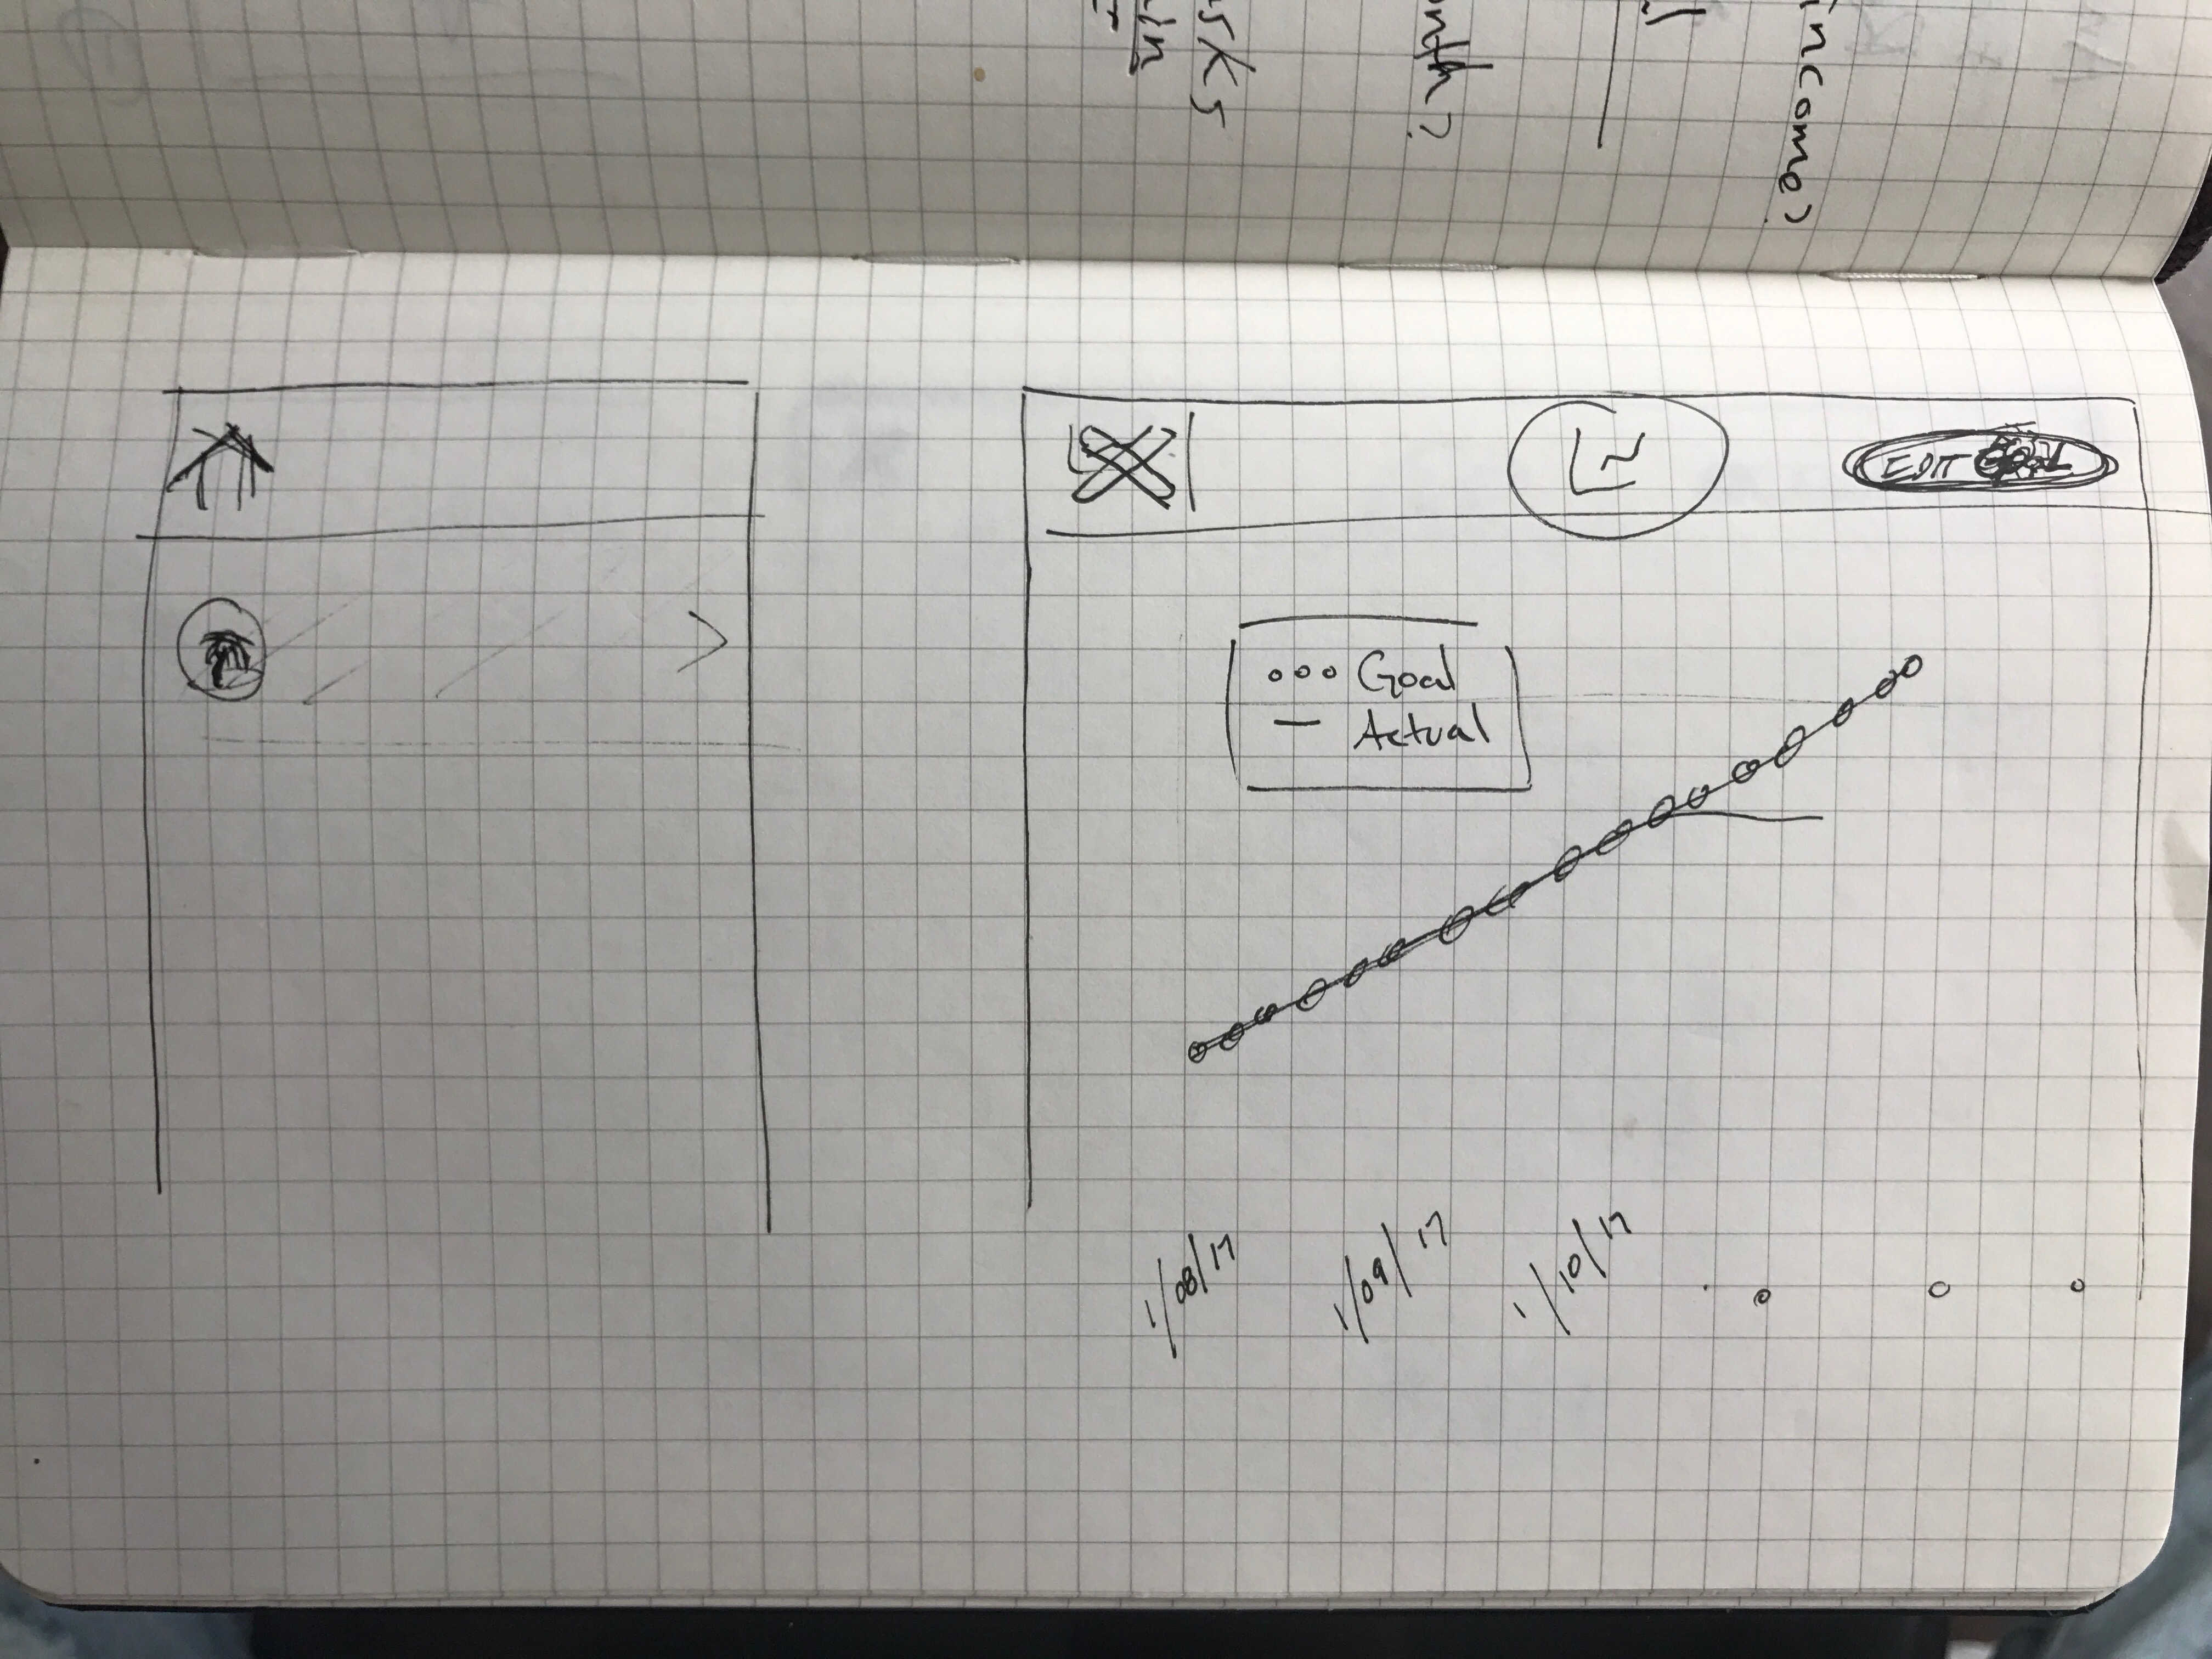 income?
onth?
asks
in
EDIT GOAL
ooo Goal
— Actual
1/08/17
1/09/17
1/10/17